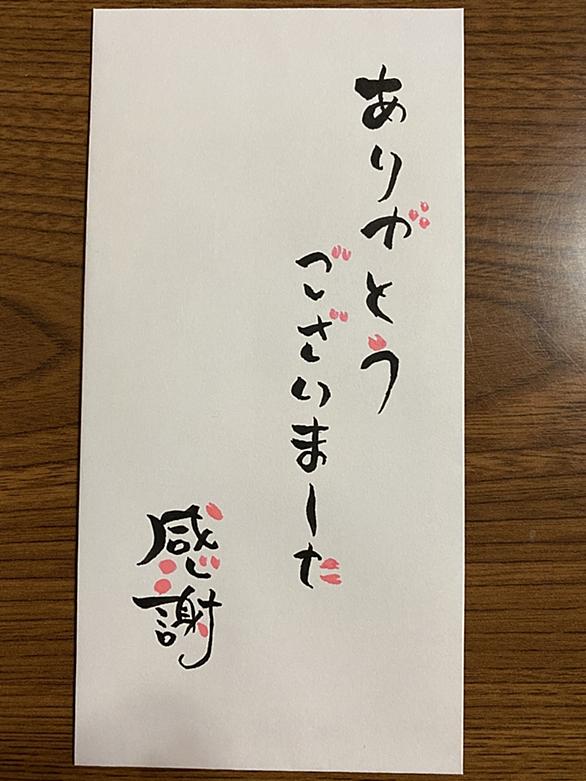 ありがとう
ございました
感謝